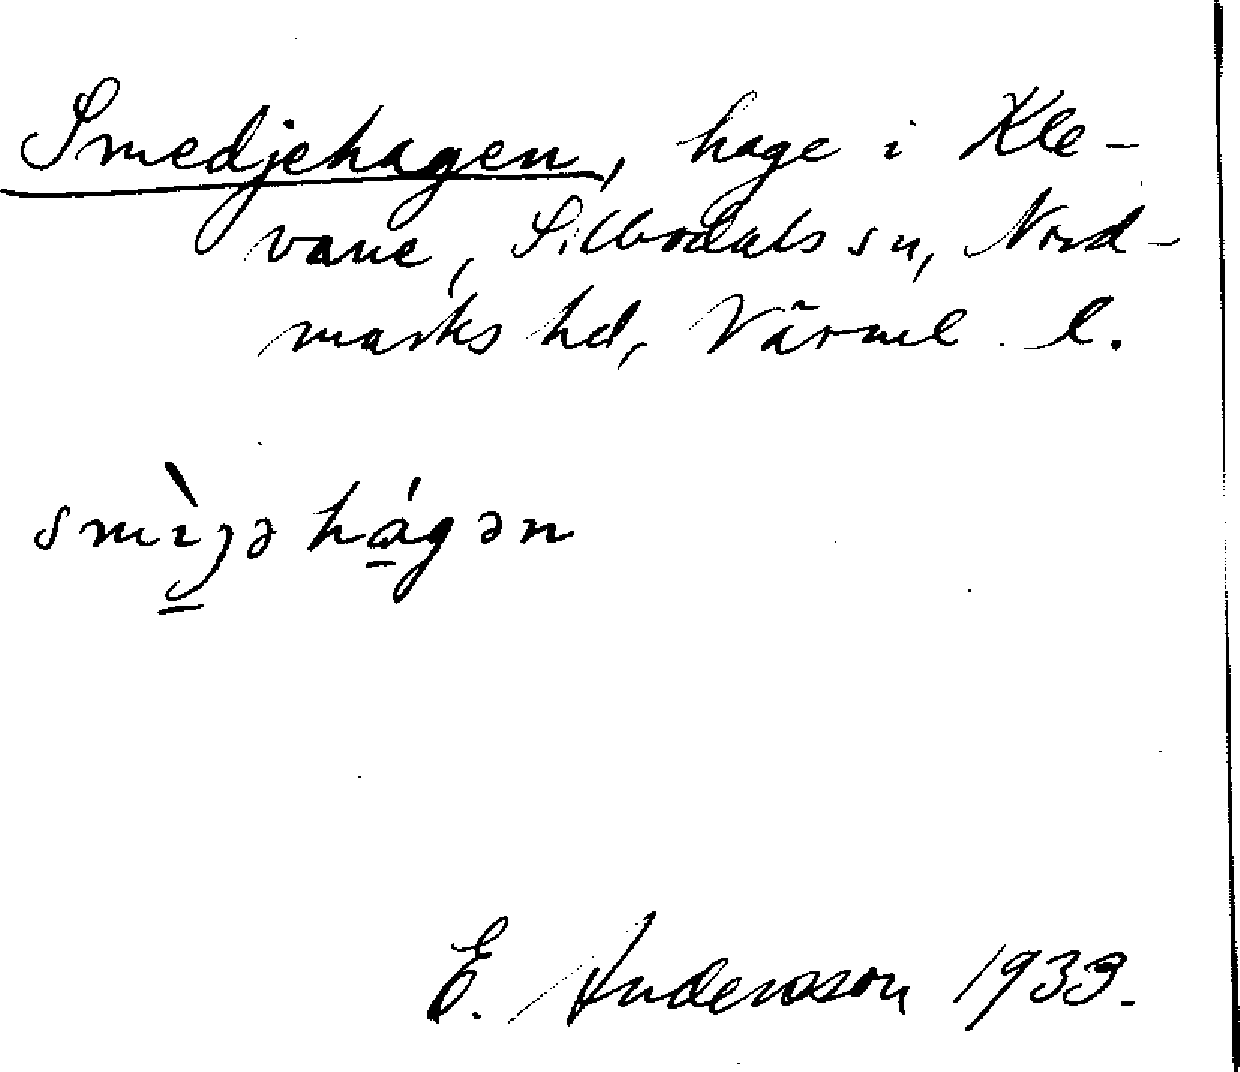 Smedjehagen, hage i Kle-
vane, Sillbodals sn, Nord-
marks hd, Värml. l.
smìɟə hágən
E. Andersson 1933.